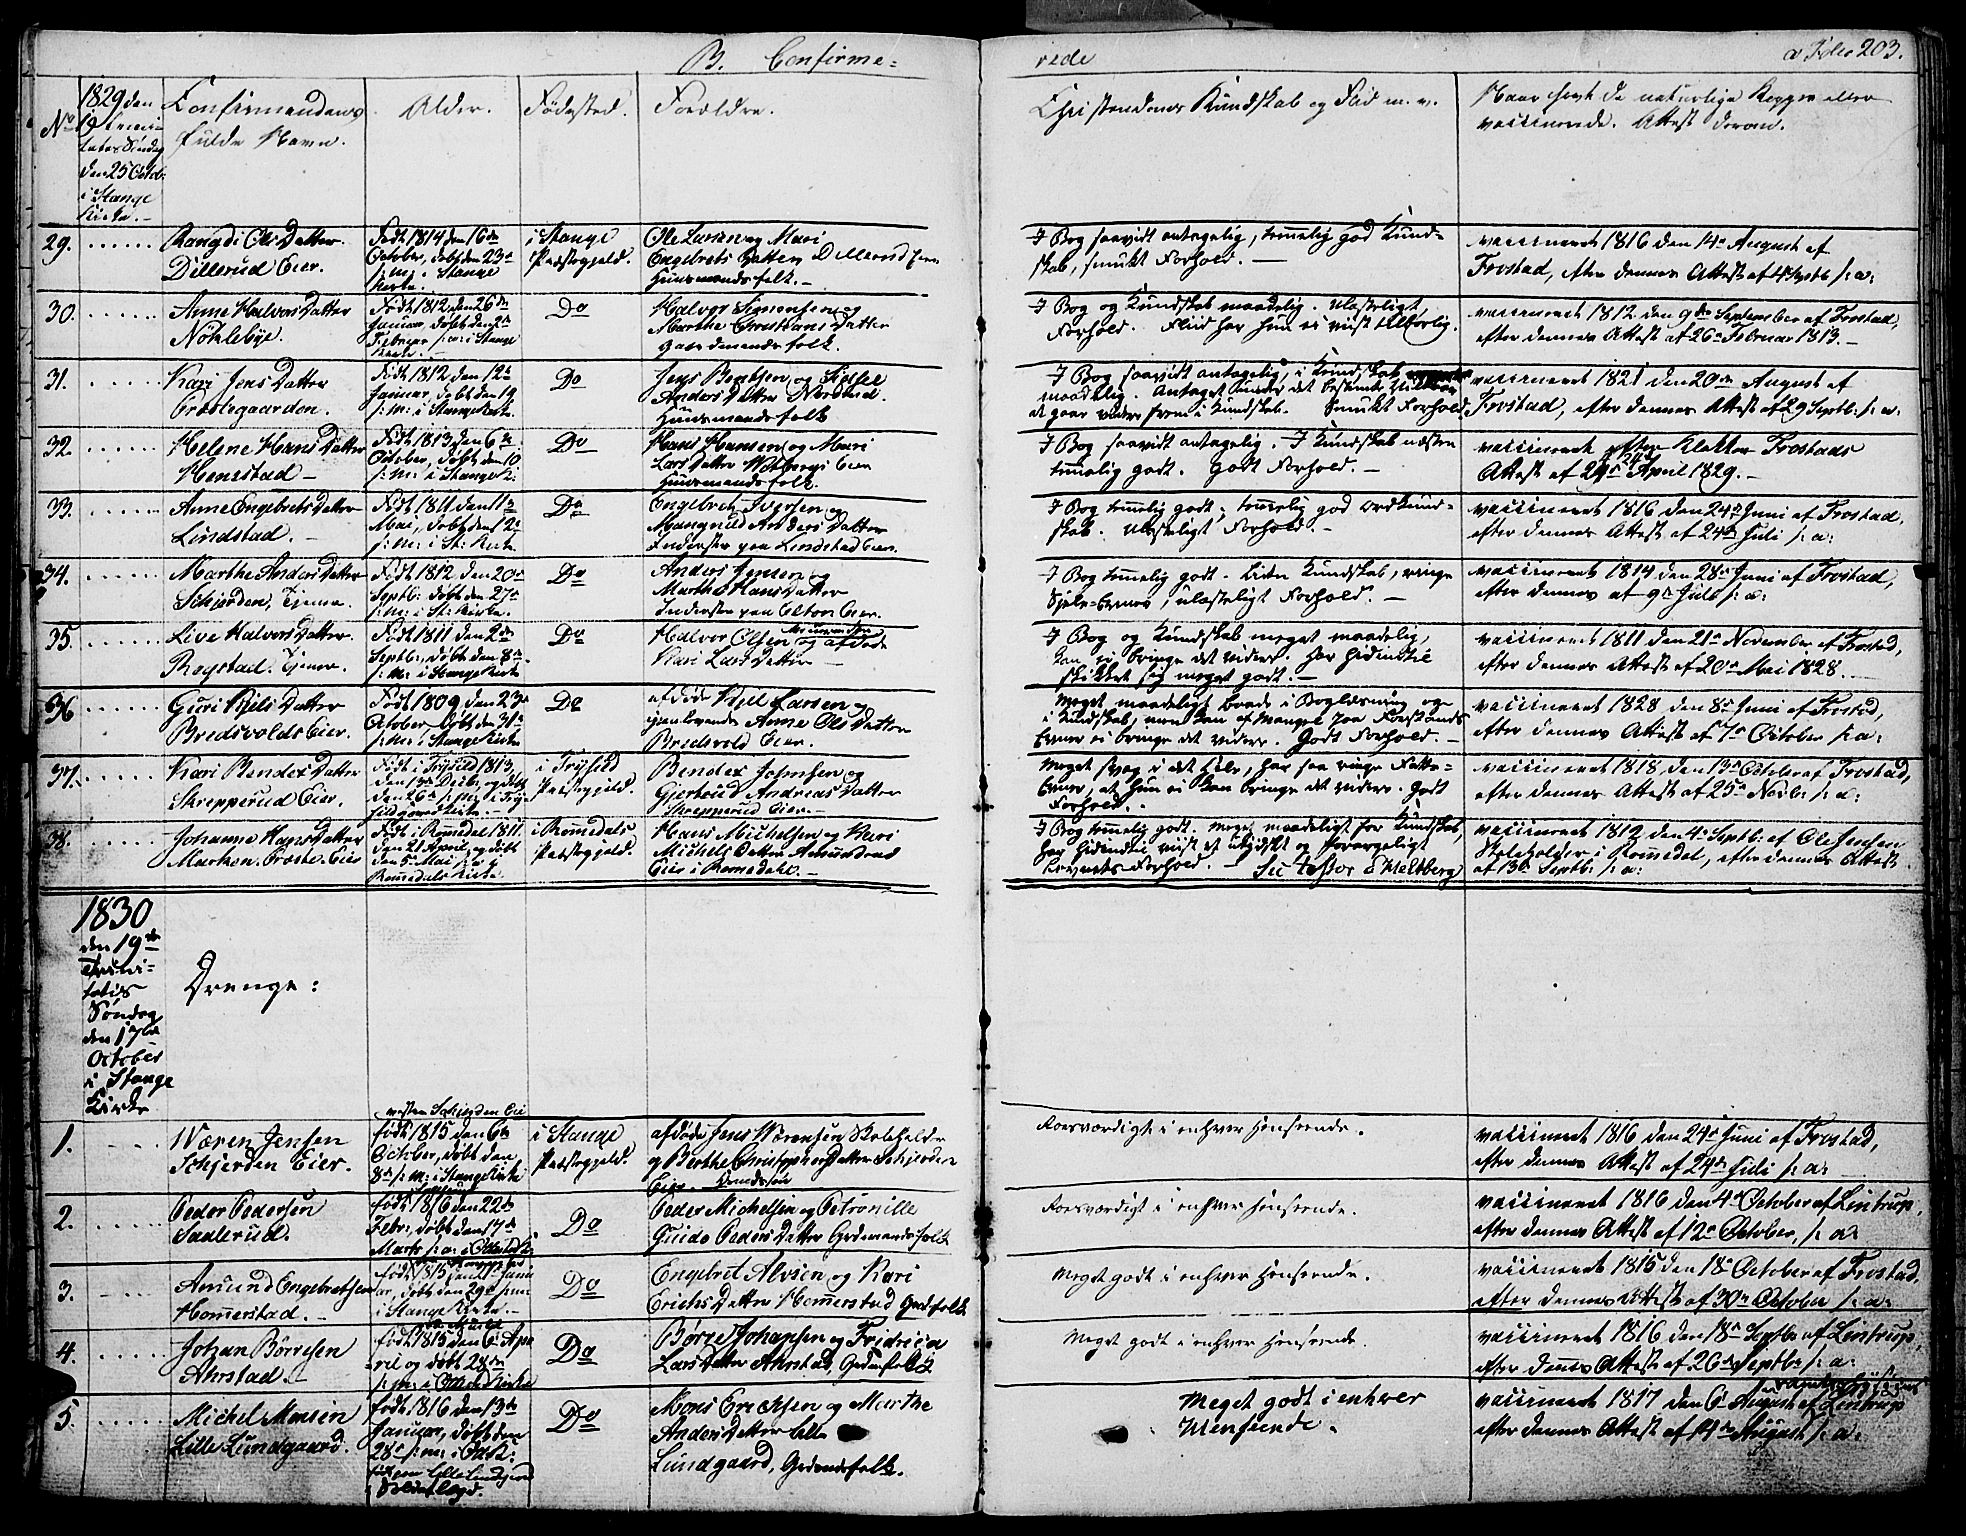 B. Confirme=
rede
Folio 203.
No
1829 den
19 Trini-
tatis Søndag
den 25 Octob:
i Stange
Kirke. -
Confirmandens
fulde Navn.
Alder.
Fødested.
Forældre.
Christendoms Kundskab og Flid m. v.
Naar havt de naturlige Kopper eller
vaccinerede. Attest derom.
29.
Rangdi Ols Datter
Dillerud Eier.
Født 1814 den 16de
October, døbt den 23de
s: m: i Stange
Kirke.
i Stange
Præstegjeld.
Ole Larsen og Mari
Engebrets Datter Dillerud Eier
Huusmandsfolk. -
I Bog saavidt antagelig, temmelig god Kund-
skab, smukt Forhold. -
vaccineret 1816 den 14de August af
Frostad, efter dennes Attest af 4 Septb: s: a:
30.
Anne Halvors Datter
Nøklebye.
Født 1812 den 26de
Januar, døbt den 2de
Februar s: a: i Stange
Kirke. -
Do
Halvor Simensen og
Marthe Christians Datter
Gaardmandsfolk.
I Bog og Kundskab maadelig. Ulasteligt
Forhold. Fliid har hun ei viist tilbørlig.
vaccineret 1812 den 9de September af Frostad,
efter dennes Attest af 26de Februar 1813. -
31.
Kari Jens Datter
Præstegaarden.
Født 1812 den 12te
Januar, døbt den 19
s: m: i Stange Kirke.
Do
Jens Bentsen og Sidsel
Anders Datter Nordstad.
Huusmandsfolk
I Bog saavidt antagelig, i Kundskab
maadelig. Antaget under det bestemte Vilkaar
at gaae videre frem i Kundskab. Smukt Forhold
vaccineret 1821 den 20de August af
Frostad, efter dennes Attest af 29 Septb: s: a:
32.
Helene Hans Datter
Hemstad -
Født 1813 den 6te
October, døbt den 10
s: m: i Stange K:
Do
Hans Hansen og Mari
Lars Datter Wiberg Eier
Huusmandsfolk.
I Bog saavidt antagelig. I Kundskab næsten
temmelig godt. Godt Forhold. -
vaccineret efter Klokker Frostads
Attest af 24de April 1829. -
33.
Anne Engebrets Datter
Lindstad. -
Født 1811 den 11te
Mai, døbt den 12te
s: m: i St: Kirke.
Do
Engebret Iversen og
Mangnild Anders Datter
Inderster paa Lindstad Eier.
I Bog temmelig godt. temmelig god Ordkund-
skab. Ulasteligt Forhold. -
vaccineret 1816 den 24de Juni af Frostad,
efter dennes Attest af 24de Juli s: a:
34.
Marthe Anders Datter
Schjerden, Tjener.
Født 1812 den 20de
Septb: døbt den 27de
s: m: i St: Kirke.
Do
Anders Jensen og
Marthe Hans Datter
Inderster paa Elton Eier.
I Bog temmelig godt. Liden Kundskab, ringe
Sjels-Evner, ulasteligt Forhold. -
vaccineret 1814 den 28de Juni af Frostad,
efter dennes af 9de Juli s: a:
35.
Live Halvors Datter
Rogstad. Tjener.
Født 1811 den 2den
Septb:, døbt den 8de
s: M: i Stange Kirke
Do
Halvor Olsen og afdøde
Kari Lars Datter -
I Bog og Kundskab meget maadelig,
kan ei bringe det videre. Har hidindtil
skikket sig meget godt. -
vaccineret 1811 den 21de November af Frostad,
efter dennes Attest af 20de Mai 1828.
36
Guri Kjels Datter
Bredsvolds Eier.
Født 1809 den 23de
October, døbt den 31te
s: m: i Stange Kirke
Do
afdøde Kjel Larsen og
gjenlevende Anne Ols Datter
Bredsvold Eier.
Meget maadeligt baade i Boglæsning og
i Kundskab, men kan af Mangel paa Forstands
Evner ei bringe det videre. Godt Forhold. -
vaccineret 1828 den 8de Juni af Frostad,
efter dennes Attest af 7de October s: a:
37.
Kari Bendix Datter
Skrepperud Eier.
Født i Trysild 1813,
den 17de Decbr, og døbt
den 26de s: m: i Try-
i Trysild
Præstegjeld.
Bendix Johnsen og
Gjertrud Andreas Datter
Skrepperud Eier. -
Meget svag i det hele, har saa ringe Fatte-
Evner, at hun ei kan bringe det videre. Godt
Forhold.
vaccineret 1818 den 13de October af Frostad,
efter dennes Attest af 25de Novb: s: a:
38.
Johanne Hans Datter
Marken. Præste-Eier
Født i Romedal 1811.
den 21 April, og døbt
den 5te Mai s: a: i
Romedals Kirke.
i Romedals
Præstegjeld.
Hans Michelsen og Kari
Michels Datter
Eier i Romedal. -
I Bog temmelig godt. Meget maadeligt for Kundskab,
har hidindtil viist et utugtigt og forargeligt
Levnets-Forhold. - Sic testor Meltberg
vaccineret 1812 den 4de Septb: af Ole Jensen
Skoleholder i Romedal, efter dennes Attest
af 13de Septb: s: a:
1830
den 19de
Trini-
tatis
Søndag
den 17de
October
i Stange
Kirke
Drenge:
1.
Wæren Jensen
Schjerden Eier.
vestre Schjerden Eie
født 1815 den 6te
October, døbt den
8de s: m: i Stange Kirke
i Stange
Præstegjeld.
afdøde Jens Wærensen Skoleholder
og Berthe Christophers Datter Schjerden
Eier.
Roesværdigt i enhver Henseende.
vaccineret 1816 den 24de Juni af Frostad,
efter dennes Attest af 24de Juli s: a:
2.
Peder Pedersen
Saalerud.
født 1816 den 22de
Febr:, døbt den 17de
Marts s: a: i Ottestad K:
Do
Peder Michelsen og Petronille
Guide Peders Datter Grdmandsfolk
Roesværdigt i enhver Henseende.
vaccineret 1816 den 4de October af Lintrup,
efter dennes Attest af 12te October, s: a:
3.
Amund Engebretsen
Hommerstad. -
født 1815 den 21de Janu
ar, døbt den 29de s: m:
i Stange Kirke. -
Do
Engebret Alvsen og Kari
Erichs Datter Hommerstad Grdfolk
Meget godt i enhver Henseende.
vaccineret 1815 den 18de October af Frostad,
efter dennes Attest af 30te October s: a:
4.
Johan Børresen
Ahrstad.
født 1815 den 6te Ap-
ril og døbt 28de
s: m: i Ottestad Kirke
Do
Børre Johansen og Fridricia
Lars Datter Ahrstad, Grdmfolk
Meget godt i enhver Henseende.
vaccineret 1816 den 18de Septbr af Lintrup,
efter dennes Attest af 26de Septb: s: a:
5.
Michel Monsen
Lille Lundgaard.
født 1816 den 13de
Januar, døbt den
28de s: m: i Ottest: K:
Do
Mons Erichsen og Marthe
Anders Datter Lille
Lundgaard, Grdmdsfolk.
Meget godt i enhver
Henseende.
vaccineret 1817 den 6te August af Lintrup
efter dennes Attest af 14de August s: a: